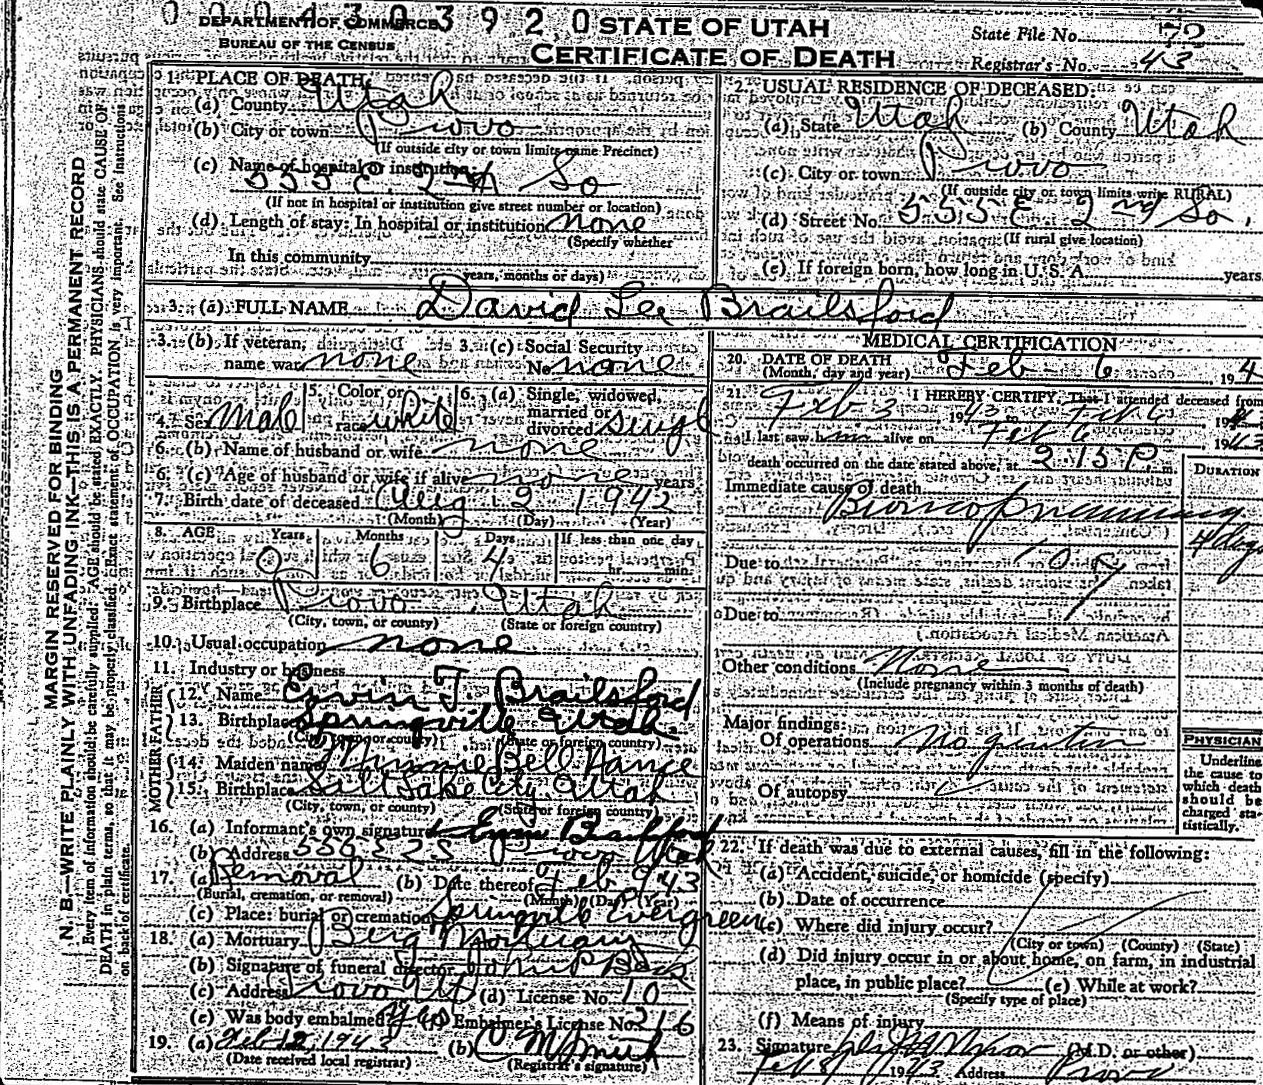 0 0 0 4 3 0 3 9 2 0
DEPARTMENT OF COMMERCE
BUREAU OF THE CENSUS
STATE OF UTAH
CERTIFICATE OF DEATH
State File No. 72
Registrar's No. 43
MARGIN RESERVED FOR BINDING
N. B.—WRITE PLAINLY WITH UNFADING INK—THIS IS A PERMANENT RECORD
Every item of information should be carefully supplied. AGE should be stated EXACTLY. PHYSICIANS should state CAUSE OF
DEATH in plain terms, so that it may be properly classified. Exact statement of OCCUPATION is very important. See instructions
on back of certificate.
1. PLACE OF DEATH:
(a) County Utah
(b) City or town Provo
(If outside city or town limits name Precinct)
(c) Name of hospital or institution:
555 E 2nd So
(If not in hospital or institution give street number or location)
(d) Length of stay: In hospital or institution none
(Specify whether
In this community
years, months or days)
2. USUAL RESIDENCE OF DECEASED:
(a) State Utah (b) County Utah
(c) City or town Provo
(If outside city or town limits write RURAL)
(d) Street No. 555 E 2nd So.
(If rural give location)
(e) If foreign born, how long in U. S. A. years.
3. (a) FULL NAME David Lee Brailsford
3. (b) If veteran,
name war none
3. (c) Social Security
No. none
4. Sex Male
5. Color or
race white
6. (a) Single, widowed,
married or
divorced singl
6. (b) Name of husband or wife none
6. (c) Age of husband or wife if alive none years
7. Birth date of deceased Aug 2 1942
(Month) (Day) (Year)
8. AGE Years Months Days If less than one day
0 6 4 hr. min.
9. Birthplace Provo Utah
(City, town, or county) (State or foreign country)
10. Usual occupation none
11. Industry or business
FATHER
12. Name Ervin T. Brailsford
13. Birthplace Springville Utah
(City, town or county) (State or foreign country)
MOTHER
14. Maiden name Minnie Bell Hance
15. Birthplace Salt Lake City Utah
(City, town, or county) (State or foreign country)
16. (a) Informant's own signature Ervin Brailsford
(b) Address 555 E 2 S Provo Utah
17. (a) Removal (b) Date thereof Feb 9 43
(Burial, cremation, or removal) (Month) (Day) (Year)
(c) Place: burial or cremation Springville Evergreen
18. (a) Mortuary Berg Mortuary
(b) Signature of funeral director
(c) Address Provo Ut (d) License No. 10
(e) Was body embalmed? yes Embalmer's License No. 216
19. (a) Feb 12, 1943 (b)
(Date received local registrar) (Registrar's signature)
MEDICAL CERTIFICATION
20. DATE OF DEATH
(Month, day and year) Feb 6, 194
21. I HEREBY CERTIFY, That I attended deceased from
Feb 3 1943 to Feb 6 19
I last saw him alive on Feb 6 1943
death occurred on the date stated above, at 2:15 P. m.
DURATION
Immediate cause of death
4 days
Due to
Due to
Other conditions None
(Include pregnancy within 3 months of death)
Major findings:
Of operations
Of autopsy
PHYSICIAN
Underline
the cause to
which death
should be
charged sta-
tistically.
22. If death was due to external causes, fill in the following:
(a) Accident, suicide, or homicide (specify)
(b) Date of occurrence
(c) Where did injury occur?
(City or town) (County) (State)
(d) Did injury occur in or about home, on farm, in industrial
place, in public place? (e) While at work?
(Specify type of place)
(f) Means of injury
23. Signature (M.D. or other)
Feb 8 1943 Address Provo